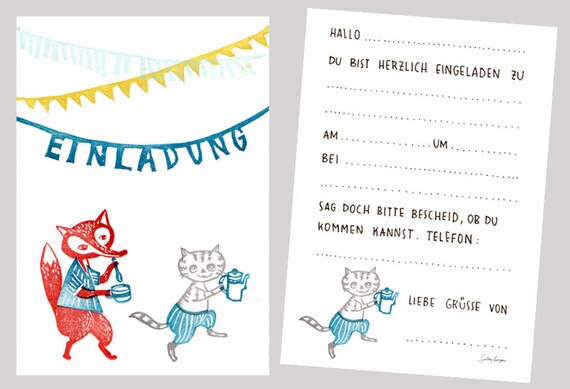 EINLADUNG
HALLO ..............................
DU BIST HERZLICH EINGELADEN ZU
..............................
..............................
AM ............... UM ...............
BEI ..............................
..............................
SAG DOCH BITTE BESCHEID, OB DU
KOMMEN KANNST. TELEFON:
..............................
LIEBE GRÜSSE VON
...............